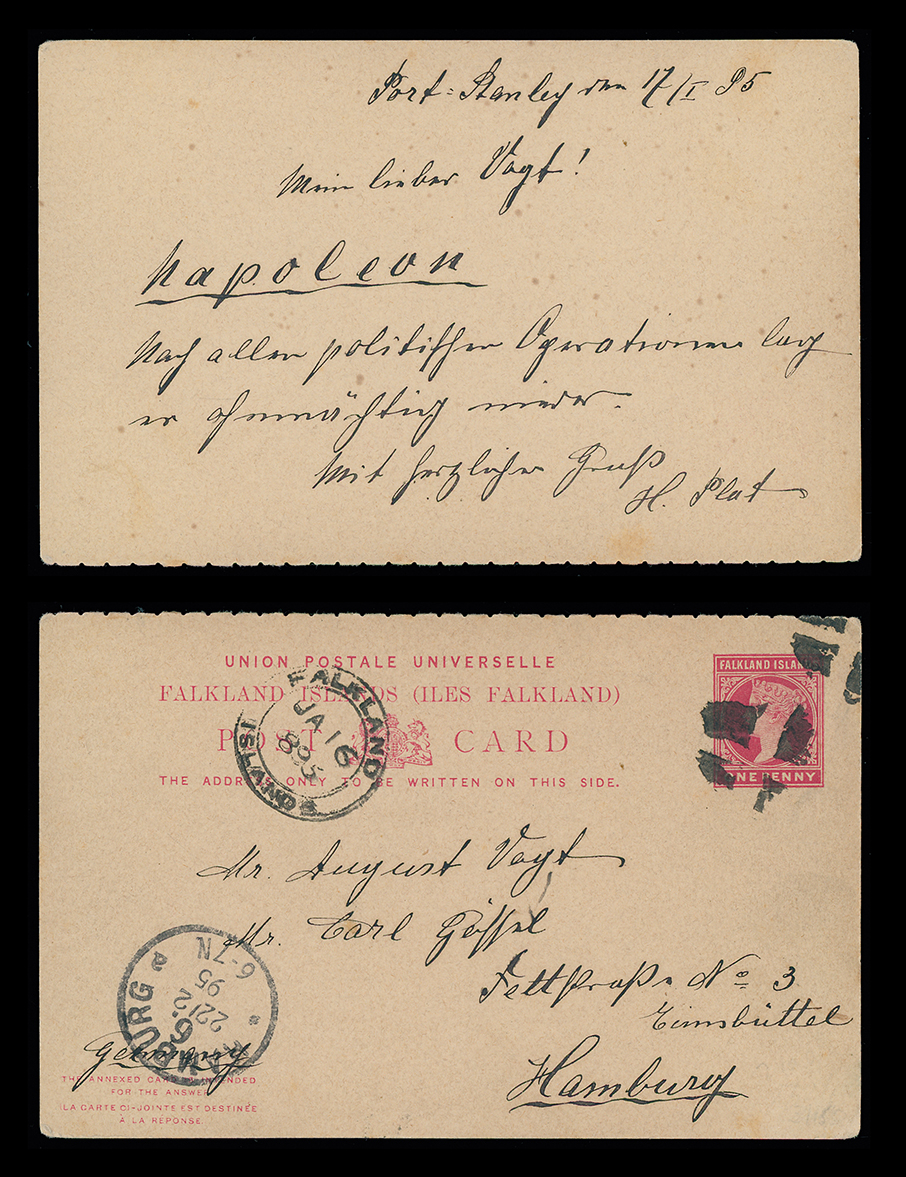 Port-Stanley den 17/I 95
Mein lieber Vogt!
Napoleon
Nach allen politischen Operationen lag
er ohnmächtig nieder.
Mit herzlichen Gruß
H. Plat
UNION POSTALE UNIVERSELLE
FALKLAND ISLANDS (ILES FALKLAND)
POST CARD
THE ADDRESS ONLY TO BE WRITTEN ON THIS SIDE.
FALKLAND ISLANDS
ONE PENNY
FALKLAND ISLANDS
JA 16
895
Mr. August Vogt
Mr. Carl Gössel
Fettstraße No 3
Eimsbüttel
Hamburg
Germany
HAMBURG
22/2
95
6-7N
THE ANNEXED CARD IS INTENDED
FOR THE ANSWER
LA CARTE CI-JOINTE EST DESTINÉE
À LA RÉPONSE.